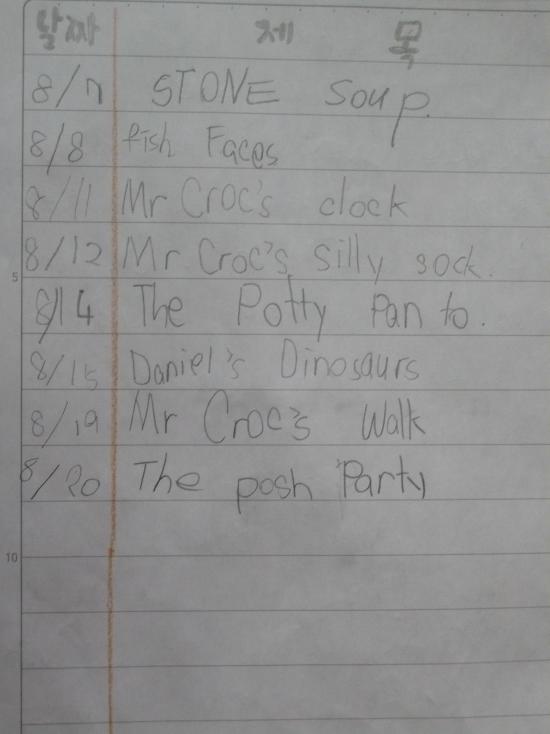 날짜 제 목
8/7 STONE Soup.
8/8 fish Faces
8/11 Mr Croc's clock
8/12 Mr Croc's Silly sock.
5
8/14 The Potty Panto.
8/15 Daniel's Dinosaurs
8/19 Mr Croc's Walk
8/20 The posh Party
10